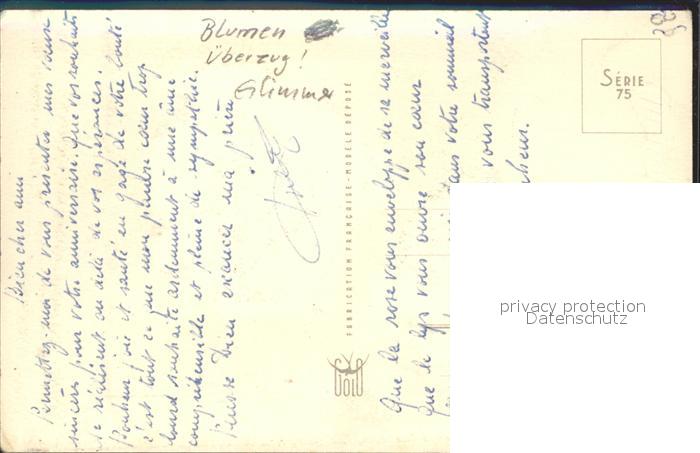 Blumen
Überzug!
Glimmer
Bien cher ami
Permettez-moi de vous présenter mes vœux
sincères pour votre anniversaire. Que vos souhaits
se réalisent au delà de vos espérances.
Bonheur joie et santé en gage de votre bonté
c'est tout ce que mon pauvre cœur trop
lourd souhaite ardemment à une âme
compréhensible et pleine de sympathie.
Puisse Dieu exaucer ma prière
FABRICATION FRANÇAISE - MODÈLE DÉPOSÉ
Que la rose vous enveloppe de sa merveille
Que le lys vous ouvre son cœur
dans votre sommeil
vous transportent
SÉRIE
75
privacy protection
Datenschutz